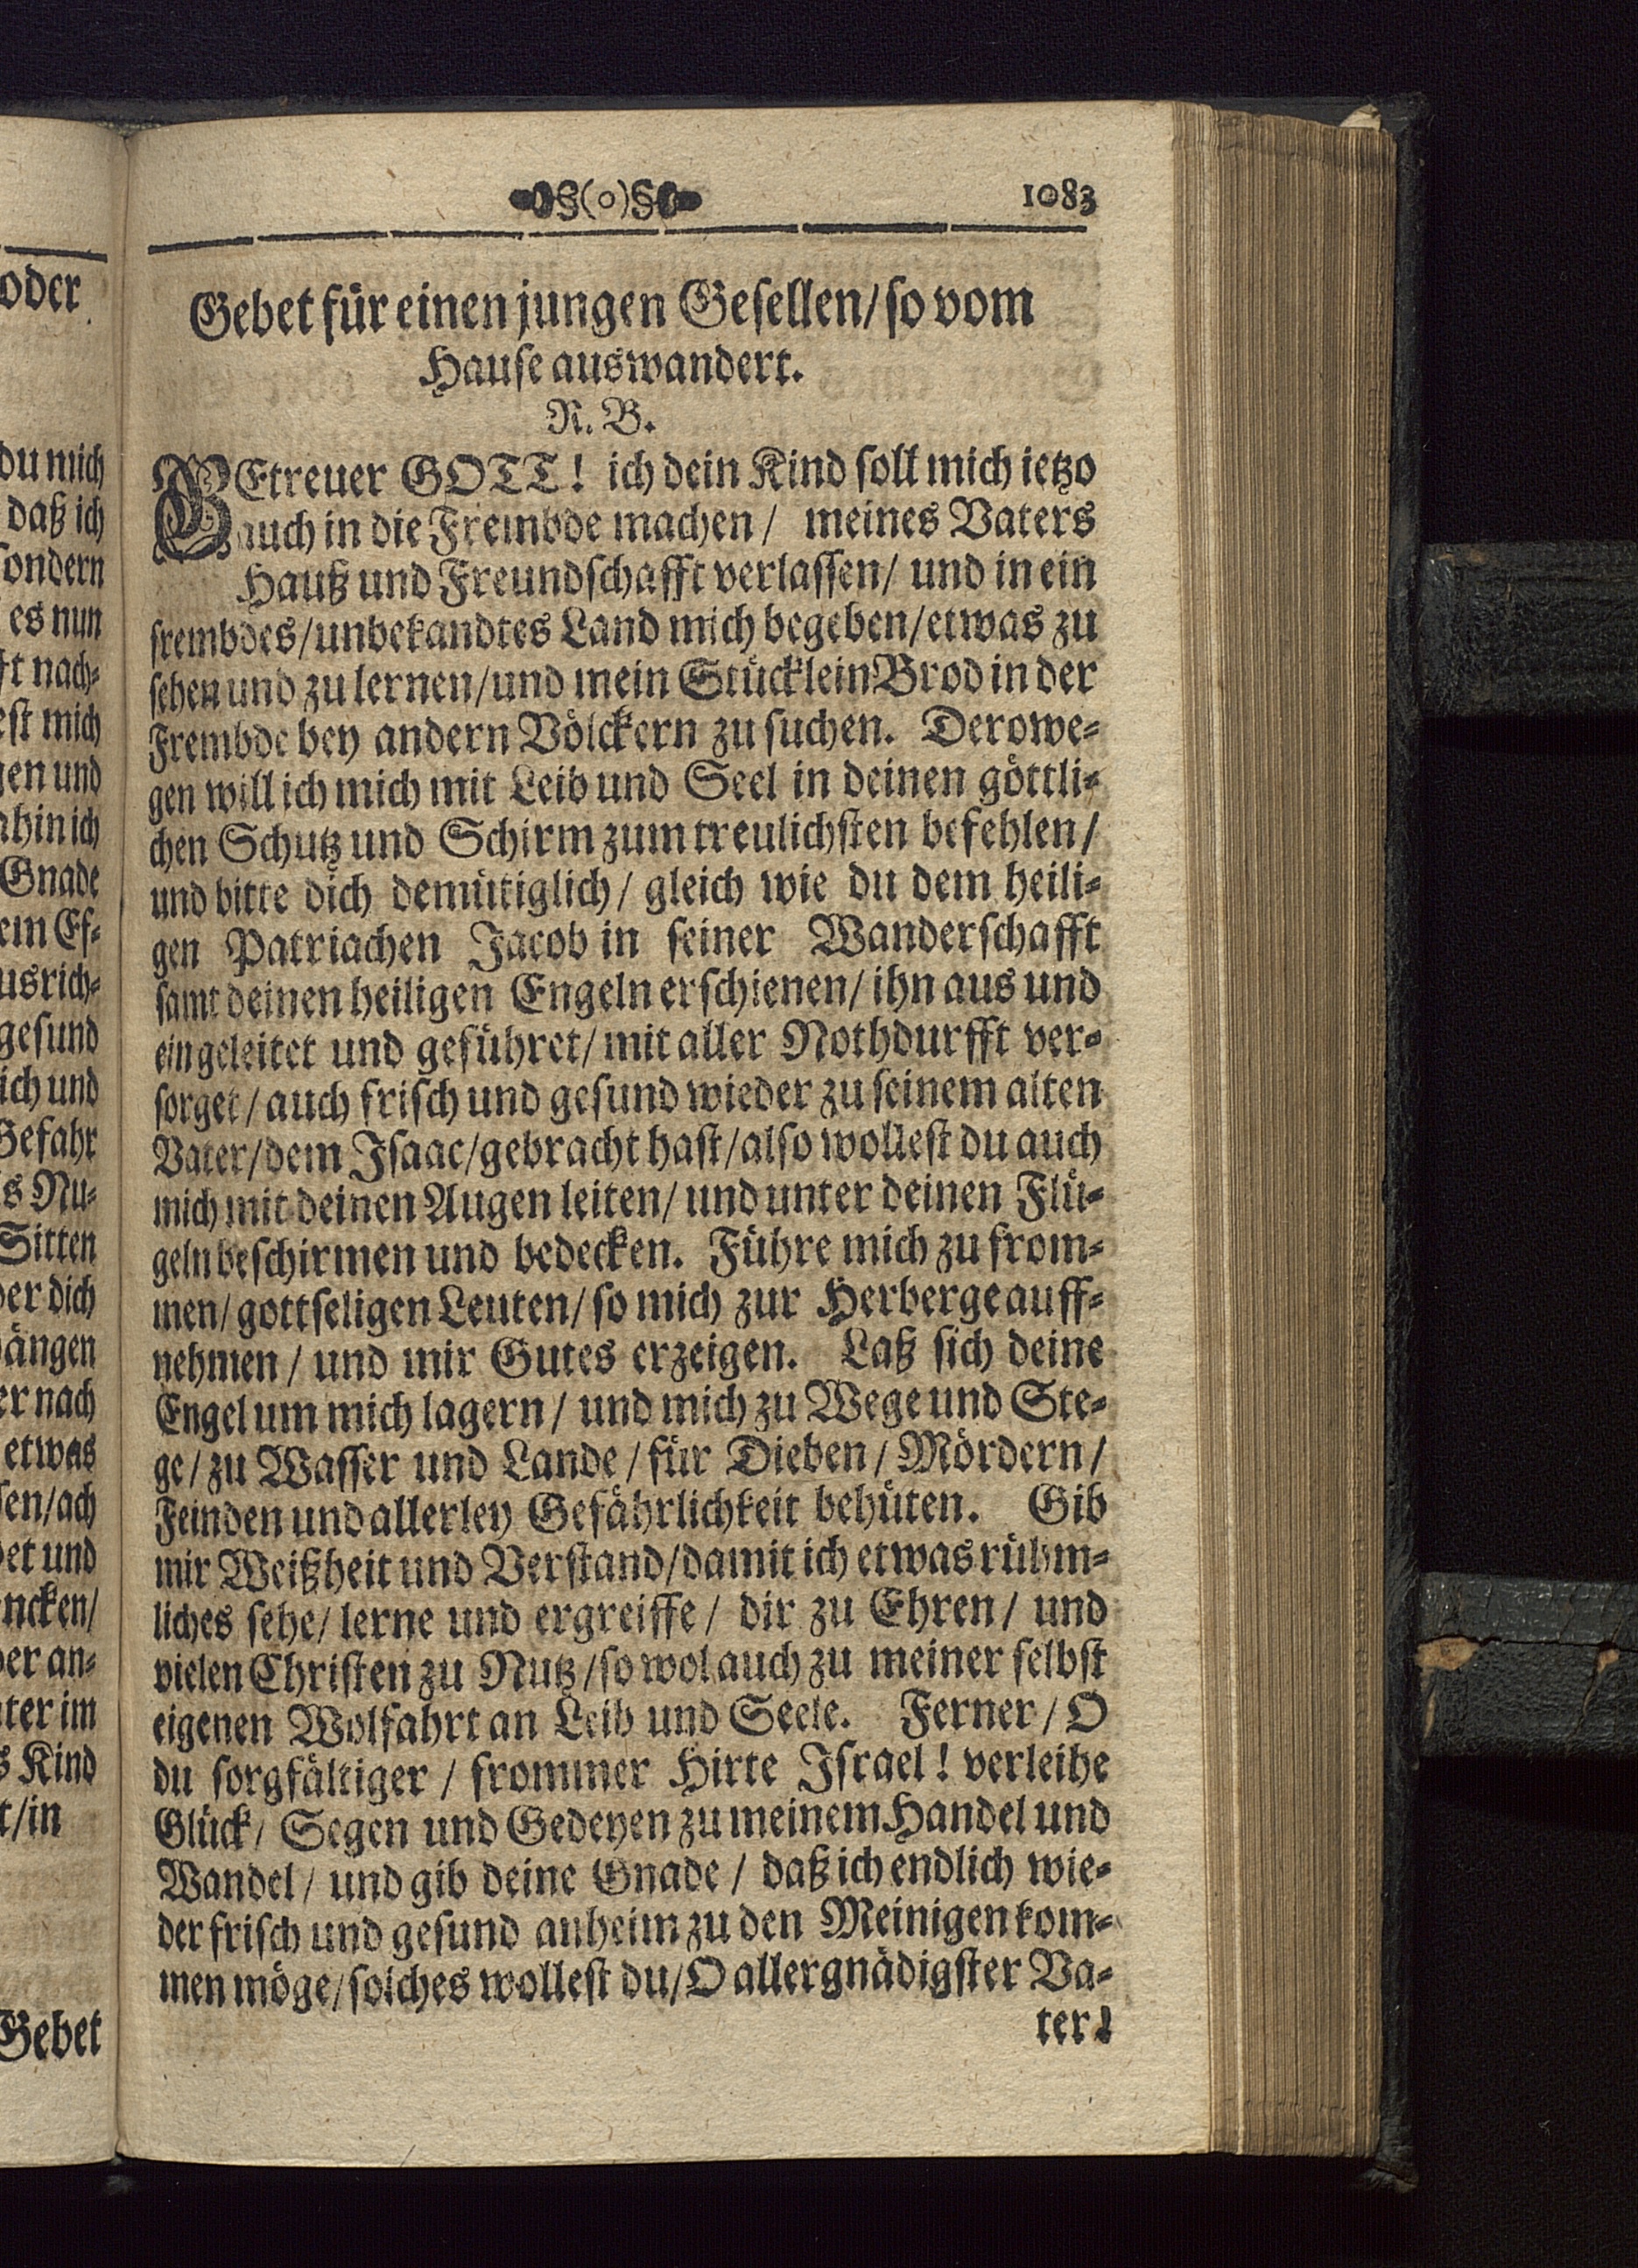 §(o)§ 1083
Gebet für einen jungen Gesellen/ so vom
Hause auswandert.
N. B.
GEtreuer GOTT! ich dein Kind soll mich ietzo
auch in die Frembde machen/ meines Vaters
Hauß und Freundschafft verlassen/ und in ein
frembdes/ unbekandtes Land mich begeben/ etwas zu
sehen und zu lernen/ und mein Stücklein Brod in der
Frembde bey andern Völckern zu suchen. Derowe-
gen will ich mich mit Leib und Seel in deinen göttli-
chen Schutz und Schirm zum treulichsten befehlen/
und bitte dich demütiglich/ gleich wie du dem heili-
gen Patriachen Jacob in seiner Wanderschafft
samt deinen heiligen Engeln erschienen/ ihn aus und
eingeleitet und geführet/ mit aller Nothdurfft ver-
sorget/ auch frisch und gesund wieder zu seinem alten
Vater/ dem Isaac/ gebracht hast/ also wollest du auch
mich mit deinen Augen leiten/ und unter deinen Flü-
geln beschirmen und bedecken. Führe mich zu from-
men/ gottseligen Leuten/ so mich zur Herberge auff-
nehmen/ und mir Gutes erzeigen. Laß sich deine
Engel um mich lagern/ und mich zu Wege und Ste-
ge/ zu Wasser und Lande/ für Dieben/ Mördern/
Feinden und allerley Gefährlichkeit behüten. Gib
mir Weißheit und Verstand/ damit ich etwas rühm-
liches sehe/ lerne und ergreiffe/ dir zu Ehren/ und
vielen Christen zu Nutz/ so wol auch zu meiner selbst
eigenen Wolfahrt an Leib und Seele. Ferner/ O
du sorgfältiger/ frommer Hirte Israel! verleihe
Glück/ Segen und Gedeyen zu meinem Handel und
Wandel/ und gib deine Gnade/ daß ich endlich wie-
der frisch und gesund anheim zu den Meinigen kom-
men möge/ solches wollest du/ O allergnädigster Va-
ter!